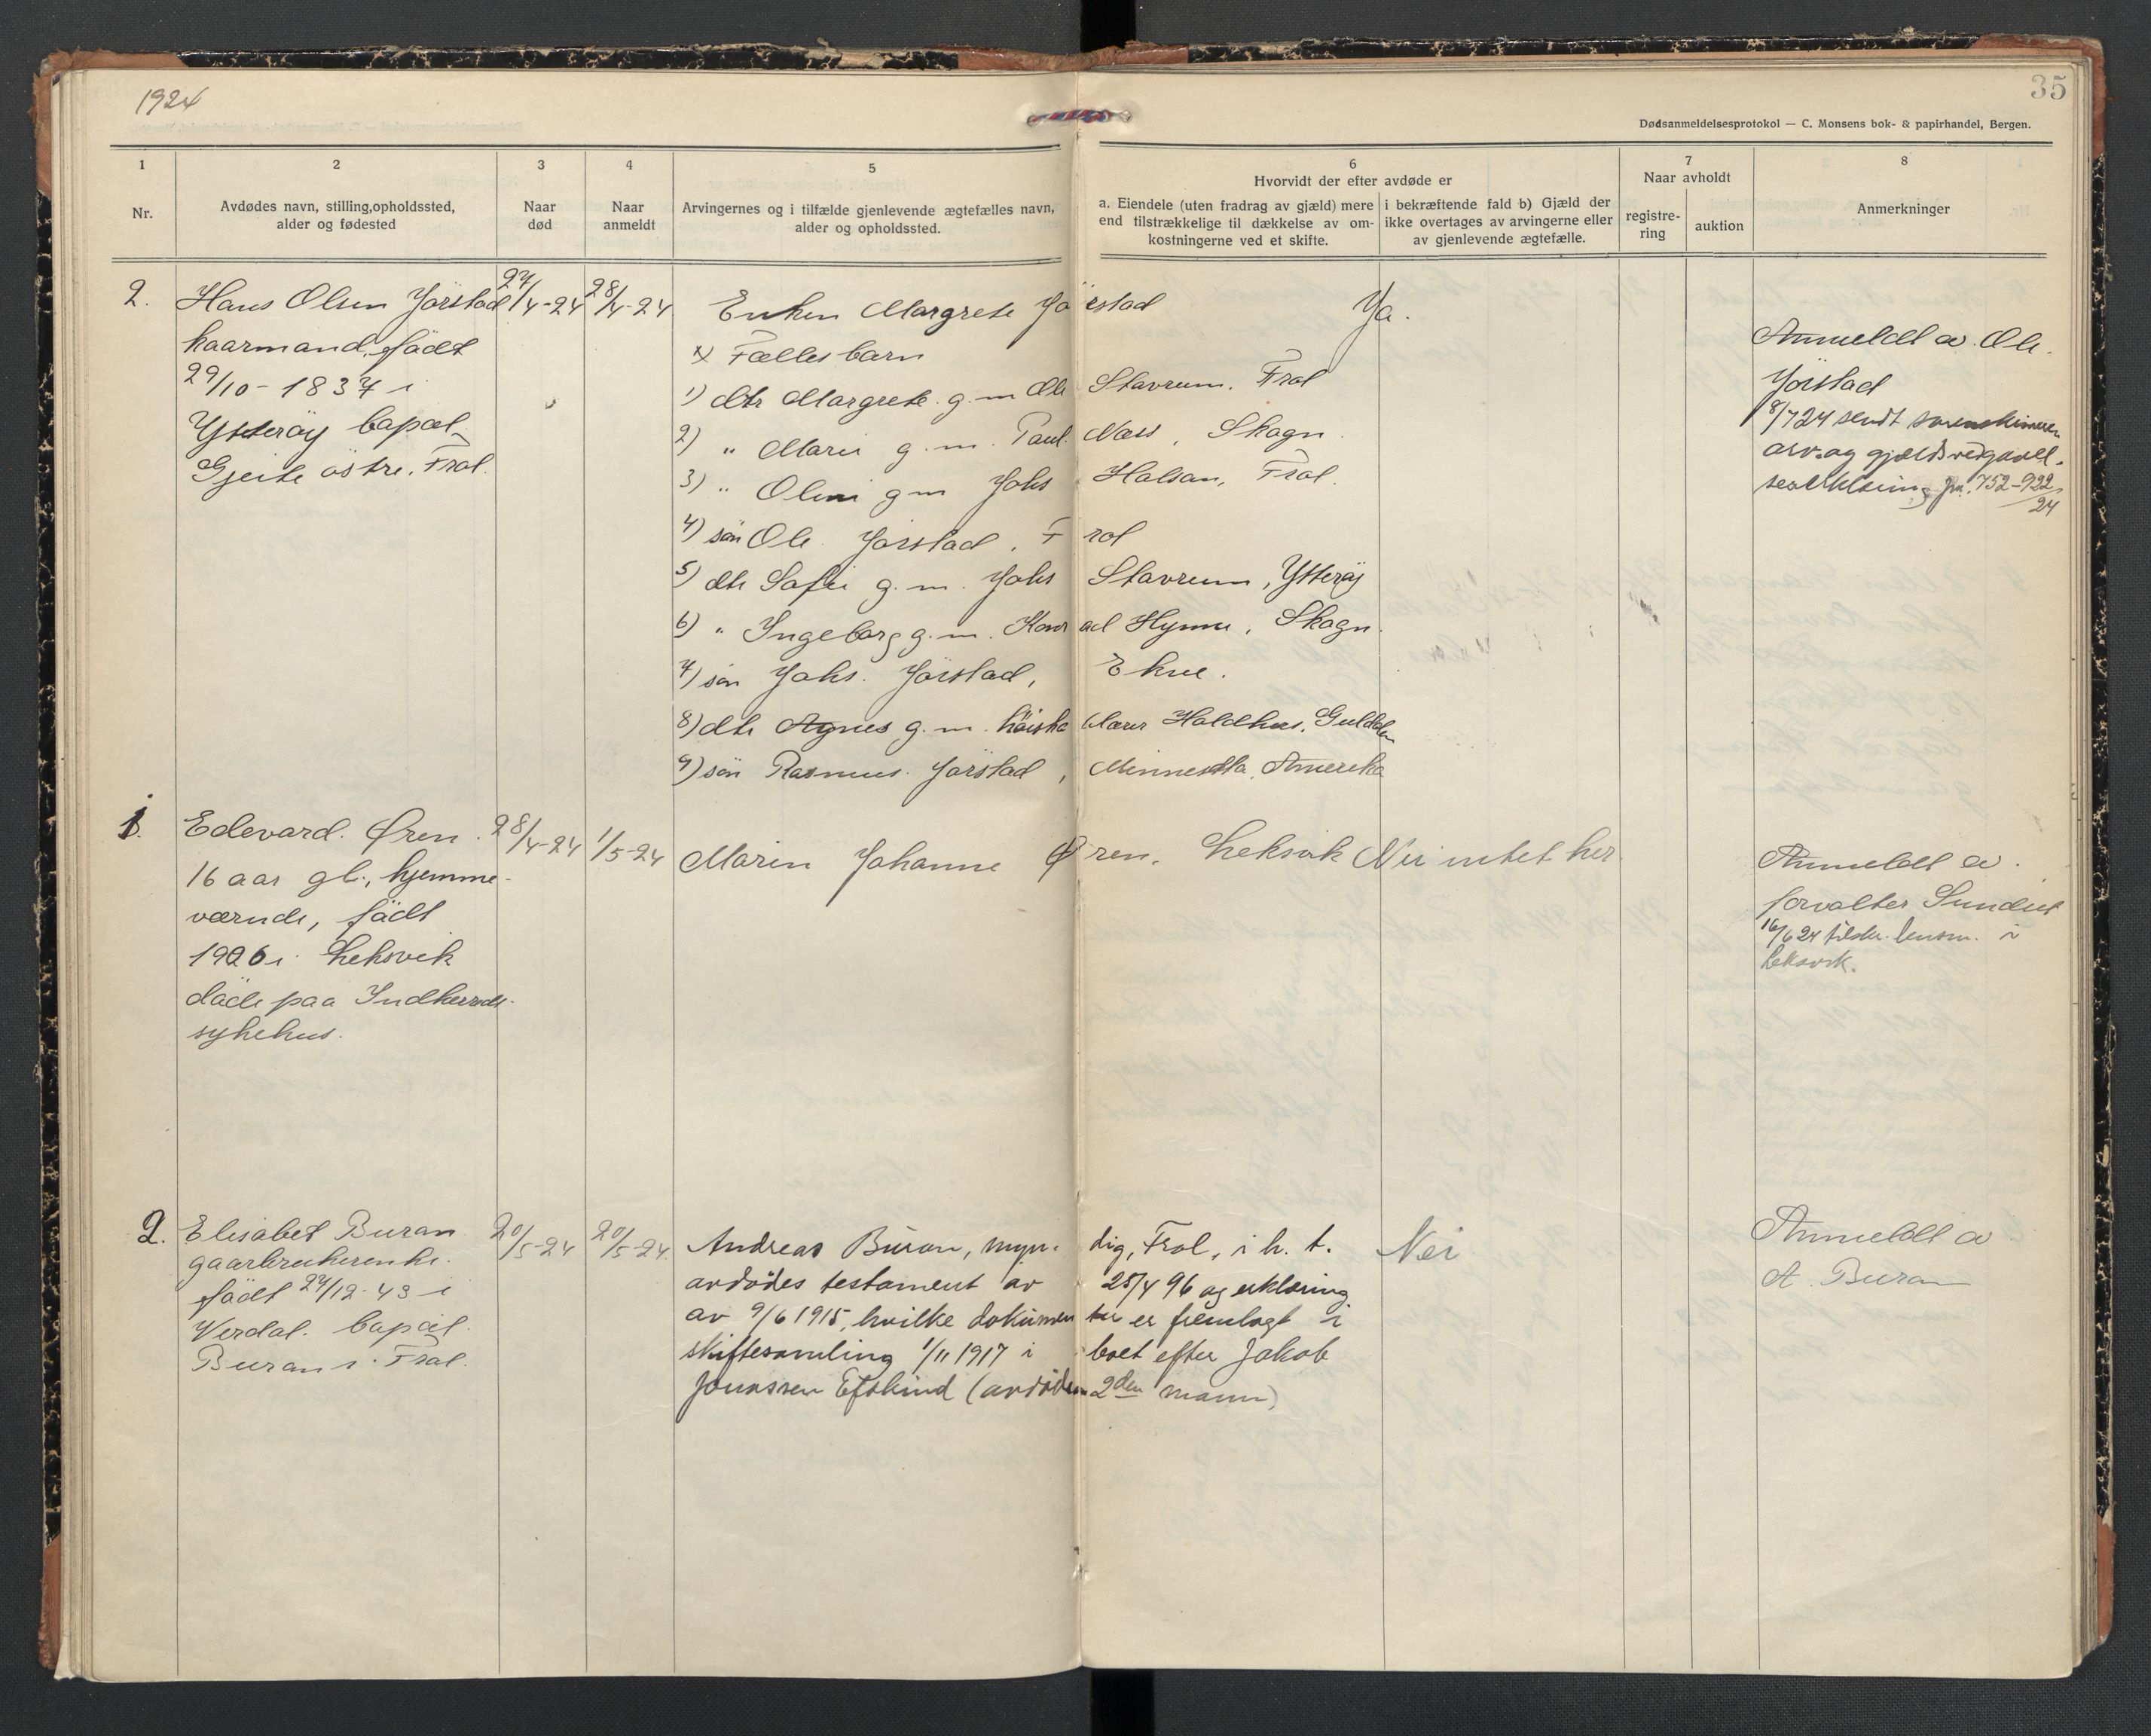 1924
35
Dødsanmeldelsesprotokol — C. Monsens bok- & papirhandel, Bergen.
1
2
3
4
5
6
7
8
Nr.
Avdødes navn, stilling, opholdssted,
alder og fødested
Naar
død
Naar
anmeldt
Arvingernes og i tilfælde gjenlevende ægtefælles navn,
alder og opholdssted.
Hvorvidt der efter avdøde er
a. Eiendele (uten fradrag av gjæld) mere
end tilstrækkelige til dækkelse av om-
kostningerne ved et skifte.
i bekræftende fald b) Gjæld der
ikke overtages av arvingerne eller
av gjenlevende ægtefælle.
Naar avholdt
registre-
ring
auktion
Anmerkninger
2.
Hans Olsen Jörstad
kaarmand, född
29/10 - 1837 i
Ytteröy bopæl
Gjeite östre. Frol.
27/4-24
28/4-24
Enken Margrete Jörstad
Fællesbarn
1) dtr Margrete g. m Ole Stavrum. Frol
2) " Marie g. m. Paul Næss, Skogn.
3) " Oline g m Johs Halsan, Frol.
4) sön Ole Jörstad, Frol
5) dtr Sofie g. m. Johs Stavrum, Ytteröy
6) " Ingeborg g. m. Konrad Hynne, Skogn.
7) sön Johs. Jörstad, Ekne.
8) dtr Agnes g. m. höiskolelærer Haldhus, Guldalen
9) sön Rasmus Jörstad, Minnesotta, Amerika
Ja.
Anmeldt av Ole
Jörstad
8/7 24 sendt sorenskriveren
arv og gjeldsvedgaael-
seserklæring jnr. 752-922/24
1.
Edevard Øren.
16 aar gl., hjemme-
værende, född
1906 i Leksvik
döde paa Indherreds
sykehus.
28/4-24
1/5-24
Maren Johanne Øren, Leksvik
Nei intet her
Anmeldt av
forvalter Sundset
16/6 24 tilskr. lensm. i
Leksvik.
2.
Elisabet Buran
gaarbrukerenke.
född 27/12-43 i
Verdal. bopæl
Buran i Frol.
20/5-24
20/5-24
Andreas Buran, myndig, Frol, i h. t.
avdödes testament av 25/4 96 og erklæring
av 9/6 1915, hvilke dokumenter er fremlagt i
skiftesamling 1/11 1917 i boet efter Jakob
Jonassen Efskind (avdödes 2den mann)
Nei
Anmeldt av
A. Buran